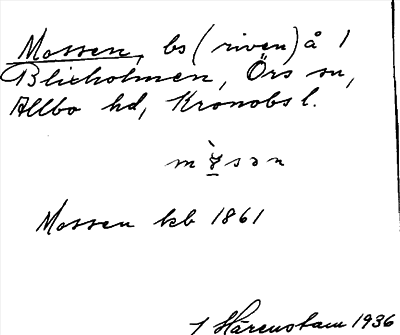 Mossen, bs (riven) å 1
Blixholmen, Örs sn,
Allbo hd, Kronobs l.
Mossen kb 1861
1 Härenstam 1936